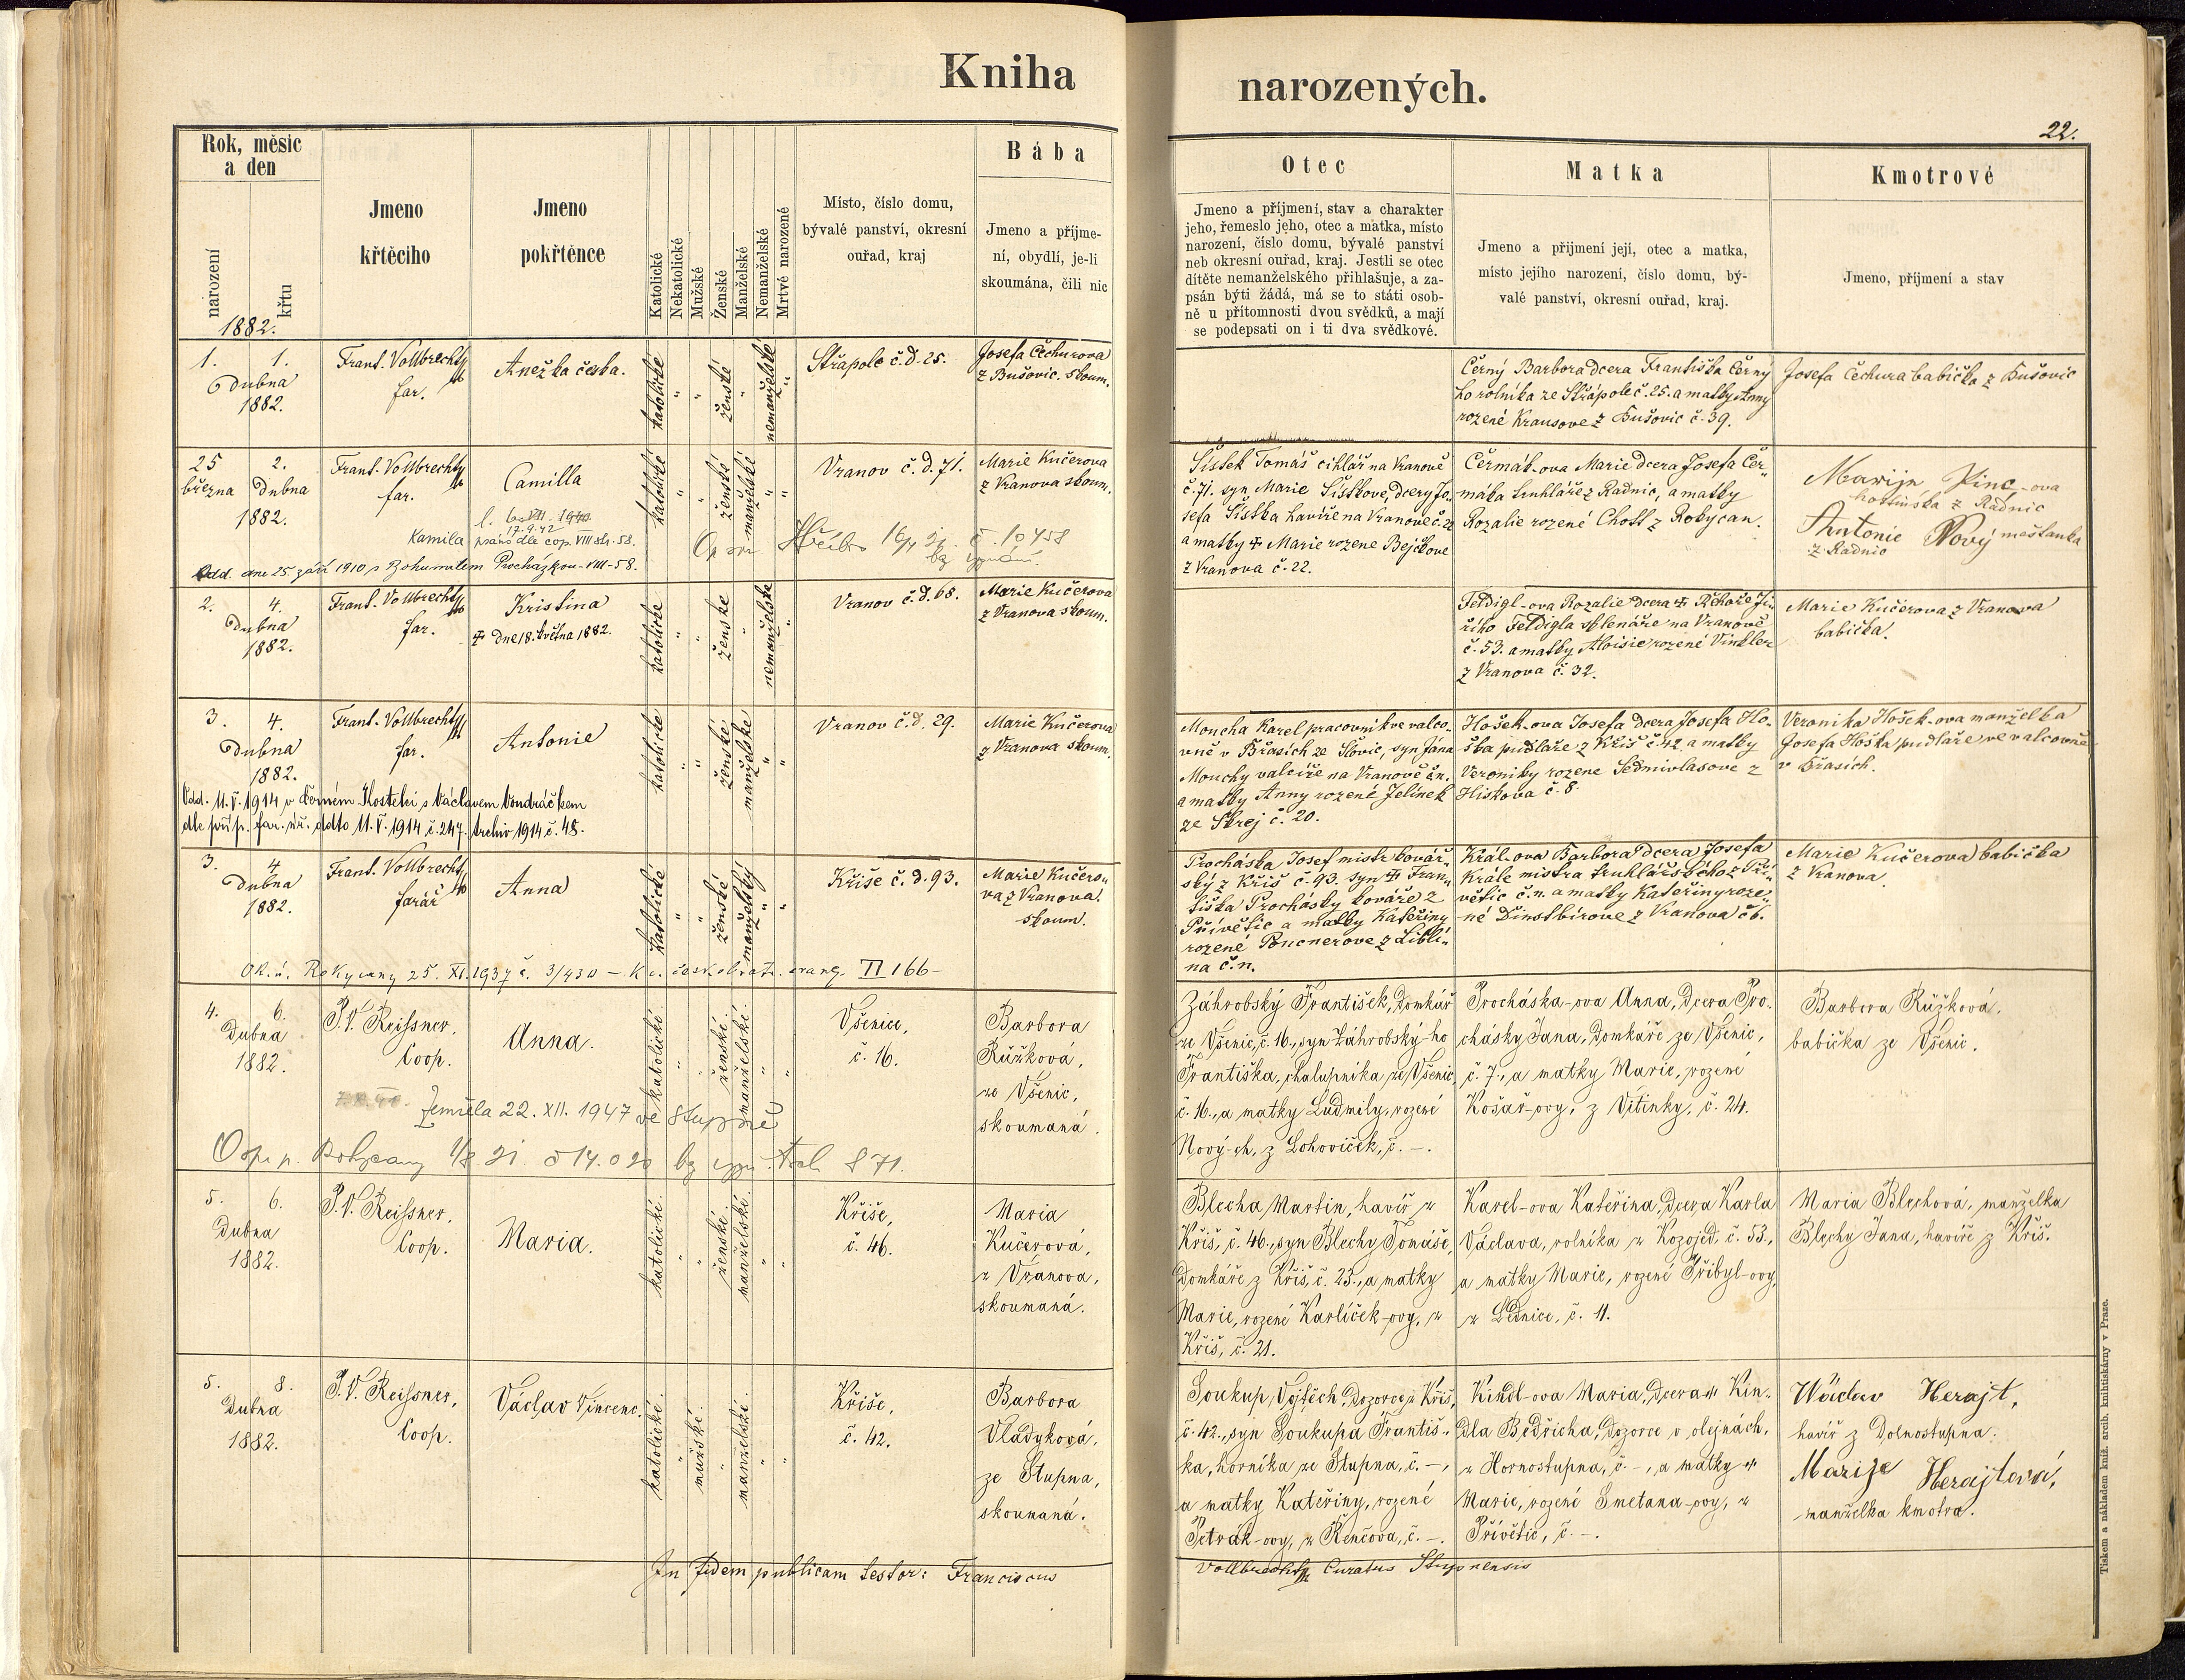 Kniha narozených.
22.
Rok, měsíc
a den
narození
křtu
1882.
Jmeno
křtěcího
Jmeno
pokřtěnce
Katolické
Nekatolické
Mužské
Ženské
Manželské
Nemanželské
Mrtvé narozené
Místo, číslo domu,
bývalé panství, okresní
ouřad, kraj
Bába
Jmeno a příjme-
ní, obydlí, je-li
skoumána, čili nic
Otec
Jmeno a příjmení, stav a charakter
jeho, řemeslo jeho, otec a matka, místo
narození, číslo domu, bývalé panství
neb okresní ouřad, kraj. Jestli se otec
dítěte nemanželského přihlašuje, a za-
psán býti žádá, má se to státi osob-
ně u přítomnosti dvou svědků, a mají
se podepsati on i ti dva svědkové.
Matka
Jmeno a příjmení její, otec a matka,
místo jejího narození, číslo domu, bý-
valé panství, okresní ouřad, kraj.
Kmotrové
Jmeno, příjmení a stav
1. 1.
Dubna
1882.
Frant. Vollbrecht
far.
Anežka česka.
katolické
ženské
nemanželské
Střapole č.d. 25.
Josefa Čechurova
z Bušovic. skoum.
Černý Barbora dcera Františka Černý
ho rolníka ze Střápole č. 25. a matky Anny
rozené Krausove z Bušovic č. 39.
Josefa Čechura babička z Bušovic
25 2.
března Dubna
1882.
Frant. Vollbrecht
far.
Camilla
17.9.42
Kamila psáno dle cop. VIII str. 58.
Odd. dne 25. září 1910 s Bohumilem Procházkou - VIII - 58.
katolické
ženské
manželské
Vranov č. d. 71.
č. 10458
bez vyznání.
Marie Kučerova
z Vranova skoum.
Šistek Tomáš cihlář na Vranově
č. 71. syn Marie Šistkove, dcery Jo-
sefa Šistka havíře na Vranově č. 22
a matky ☩ Marie rozene Bejčkove
z Vranova č. 22.
Čermák-ova Marie dcera Josefa Čer-
máka truhláře z Radnic, a matky
Rozalie rozené Chott z Rokycan.
Marija Pinc-ova
hostinska z Radnic
Antonie Nový mešťanka
z Radnic
2. 4.
Dubna
1882.
Frant. Vollbrecht
far.
Kristina
☩ Dne 18. května 1882.
katolické
ženske
nemanželske
Vranov č.d. 68.
Marie Kučerova
z Vranova skoum.
Feldigl-ova Rozalie dcera ☩ Řehoře Ji-
řího Feldigla sklenáře na Vranově
č. 53. a matky Aloisie rozené Vinkler
z Vranova č. 32.
Marie Kučerova z Vranova
babička.
3. 4.
Dubna
1882.
Frant. Vollbrecht
far.
Antonie
Odd. 11. V. 1914 v Černém Kostelci s Václavem Vondráčkem
dle příp. far. úř. ddto 11. V. 1914 č. 247. Archiv 1914 č. 48.
katolické
ženské
manželske
Vranov č.d. 29.
Marie Kučerova
z Vranova skoum.
Moucha Karel pracovník ve valco-
vně v Břasích ze Slovic, syn Jána
Mouchy valcíře na Vranově č.n.
a matky Anny rozené Jelínek
ze Skrej č. 20.
Hošek-ova Josefa dcera Josefa Ho-
ška pudláře z Kříš č. 42 a matky
Veroniky rozene Sedmivlasove z
Hiskova č. 8.
Veronika Hošek-ova manželka
Josefa Hoška pudláře ve valcovně
v Břasích.
3. 4
Dubna
1882.
Frant. Vollbrecht
farář
Anna
Ok. ú. Rokycany 25. XI. 1937 č. 3/430 – k c. českobratr. evang. II 166 –
katolické
ženské
manželsky
Kříše č. d. 93.
Marie Kučero-
va z Vranova.
skoum.
Procháska Josef mistr kovář-
ský z Kříš č. 93. syn ☩ Fran-
tiška Prochásky kováře z
Přívětic a matky Kateřiny
rozené Poncnerove z Libli-
na č.n.
Král-ova Barbora dcera Josefa
Krále mistra truhlářského z Pří-
větic č.n. a matky Kateřiny roze-
né Dinstbirove z Vranova č 6.
Marie Kučerova babička
z Vranova
4. 6.
Dubna
1882.
P. V. Reissner,
Coop.
Anna.
Zemřela 22. XII. 1947 ve Stupně
katolické.
ženské.
manželské.
Všenice,
č. 16.
Barbora
Růžková,
ze Všenic,
skoumaná.
Záhrobský František, Domkář
ze Všenic, č. 16., syn Záhrobský-ho
Františka, chalupníka ze Všenic
č. 16., a matky Ludmily, rozené
Nový-ch, z Lohoviček, č. –.
Procháska-ova Anna, Dcera Pro-
chásky Jana, Domkáře ze Všenic,
č. 7., a matky Marie, rozené
Košař-ovy, z Vitinky, č. 24.
Barbora Růžková.
babička ze Všenic.
5. 6.
Dubna
1882.
P. V. Reissner,
Coop.
Maria.
katolické.
ženské.
manželské.
Kříše,
č. 46.
Maria
Kučerová,
z Vranova,
skoumaná.
Blecha Martin, havíř z
Kříš, č. 46., syn Blechy Tomáše,
Domkáře z Kříš, č. 23., a matky
Marie, rozené Karlíček-ovy, z
Kříš, č. 21.
Karel-ova Kateřina, Dcera Karla
Václava, rolníka z Kozojed, č. 53.,
a matky Marie, rozené Přibyl-ovy,
z Lednice, č. 11.
Maria Blechová, manželka
Blechy Jana, havíře z Kříš.
5. 8.
Dubna
1882.
P. V. Reissner,
Coop.
Václav Vincenc.
katolické.
mužské.
manželské.
Kříše,
č. 42.
Barbora
Vladyková,
ze Stupna,
skoumaná.
Soukup Vojtěch, Dozorce z Kříš,
č. 42., syn Soukupa Františ-
ka, horníka ze Stupna, č. –,
a matky Kateřiny, rozené
Petrák-ovy, z Řenčova, č. –.
Kindl-ova Maria, Dcera Kin-
dla Bedřicha, Dozorce v olejnách,
z Hornostupna, č. –, a matky
Marie, rozené Smetana-ovy, z
Přívětic, č. –.
Wáclav Herajt,
havíř z Dolnostupna.
Marije Herajtová,
manželka kmotra.
In fidem publicam testor: Franciscus Vollbrecht Curatus Stupnensis
Tiskem a nákladem kníž. arcib. knihtiskárny v Praze.